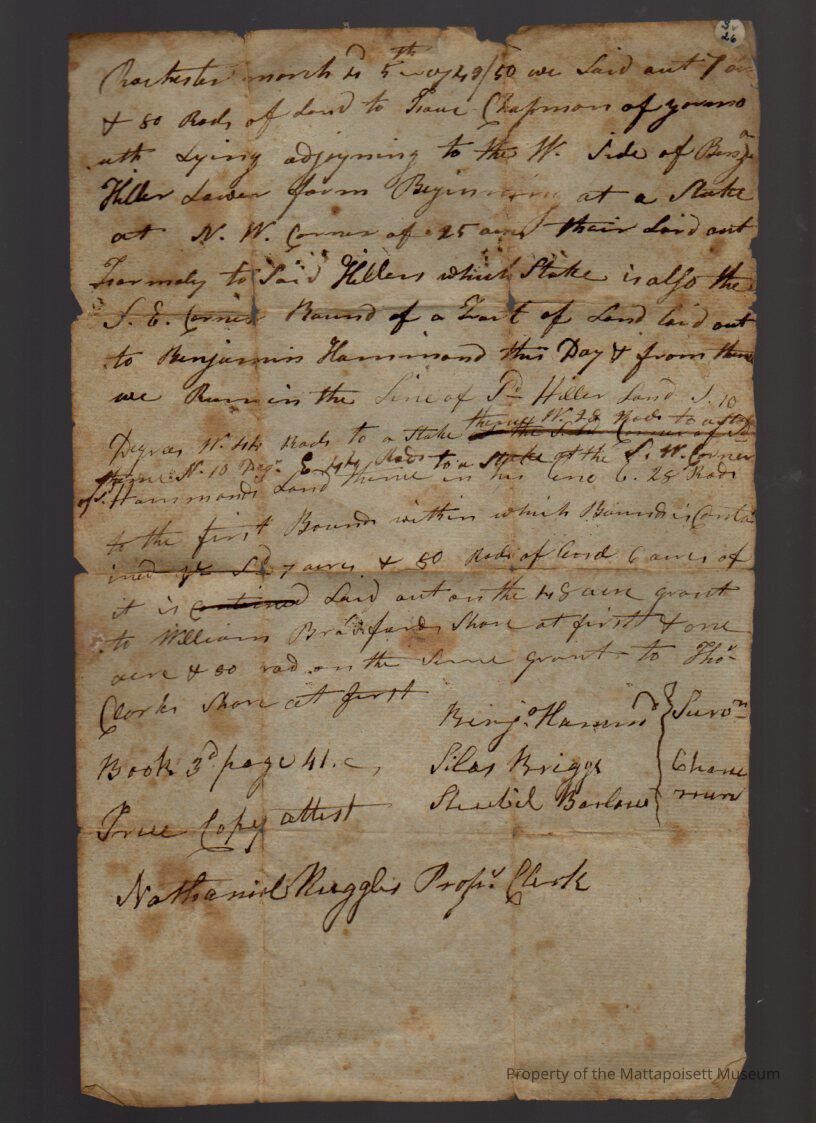 3v
26
Rochester march ye 5th 1749/50 we Laid out 7 
& 80 Rods of Land to Isaac Chapman of yarmo
uth Lying adjoyning to the W. Side of Benja
Hiller Lower farm Beginning at a Stake
at N. W. Corner of 25 acres their Laid out
Formely to Said Hillers which Stake is also the
S. E. Corner Bound of a Tract of Land laid out
to Benjamin Hammond this Day & from thence
we Run in the Line of Sd Hiller Land S. 10
Degrees W. 44 Rods to a Stake thence W. 28 Rods to a Stake
thence N. 10 Deg. E. 44 Rods to a Stake at the S. W. Corner
of Sd Hammonds Land thence in his Line E. 28 Rods
to the first Bounds within which Bounds is Conta
ined 7 acres & 80 Rods of Land 6 acres of
it is contained Laid out on the 48 acre grant
to William Bradfords Share at first & one
acre & 80 rod on the Same grant to Thos
Clarks Share at first
Benja. Hammond Survr
Book 3d page 41.
Silas Briggs Chane
men
Barlow
True Copy attest
Nathaniel Ruggles Propr. Clerk
Property of the Mattapoisett Museum